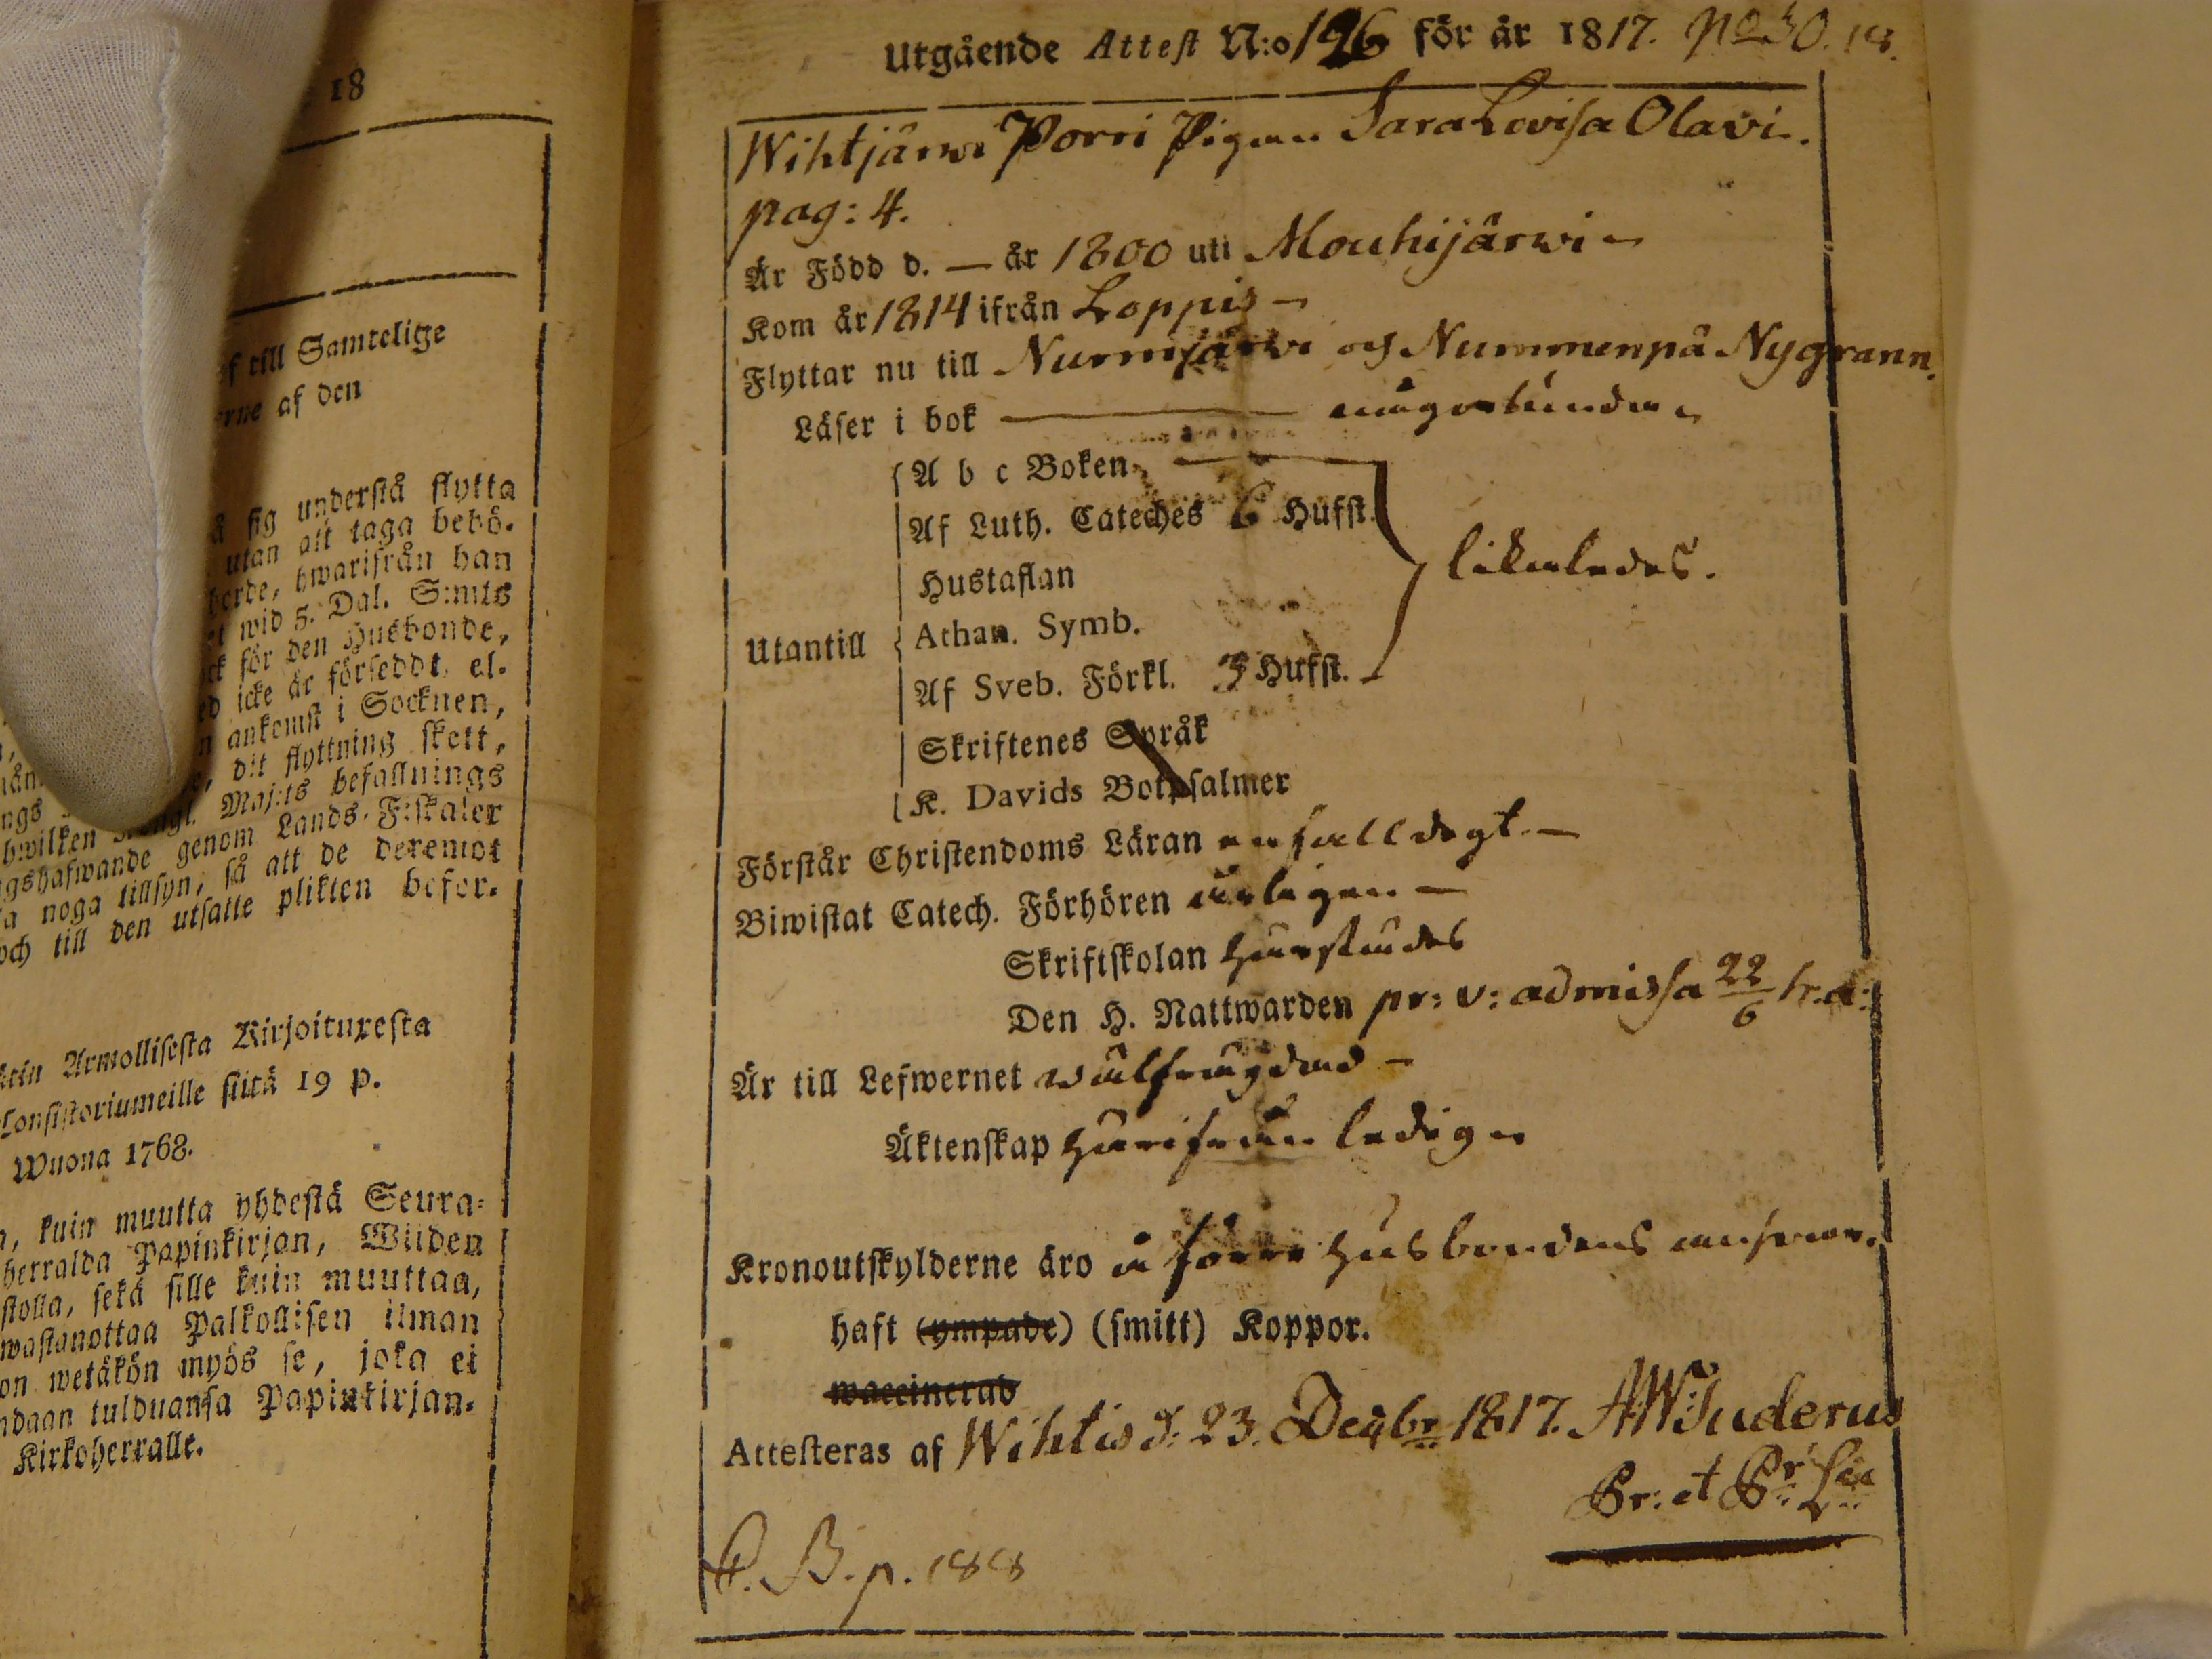 18
till Samtelige
af den
sig understå flytta
utan att taga behö-
hwarifrån han
wid 5. Dal. S:mts
för den Husbonde,
icke är försedt, el-
ankomst i Socknen,
dit flyttning skett,
hwilken Maj:ts befallnings
genom Lands-Fiskaler
noga tillsyn, så att de deremot
och till den utsatte plikten befor-
Armollisesta Kirjoituxesta
Consistoriumeille siitä 19 p.
Wuona 1768.
kuin muutta yhdestä Seura-
Papinkirjan, Wiiden
sekä sille kuin muuttaa,
Palkollisen ilman
wetäkön myös se, joka ei
tulduansa Papinkirjan-
Kirkoherralle.
Utgående Attest N:o 126 för år 1817. No 30. 18.
Wihtjärwi Porri Pigan Sara Lovisa Olavi.
pag: 4.
Är Född d. — år 1800 uti Mouhijärwi
Kom år 1814 ifrån Loppis
Flyttar nu till Nurmijärwi och Nummenpä Nygrann.
Läser i bok någorlunda
A b c Boken
Af Luth. Cateches 6 Hufst.
Hustaflan
likaledes.
Utantill
Athan. Symb.
Af Sveb. Förkl. 3 Hufst.
Skriftenes Språk
K. Davids Botpsalmer
Förstår Christendoms Läran enfalldigt.
Biwistat Catech. Förhören årligen
Skriftskolan härstädes
Den H. Nattwarden pr: v: admissa 22/6 h. a:
Är till Lefwernet wälfrägdad
Äktenskap härifrån ledig
Kronoutskylderne äro å förre husbondens answar.
haft (ympade) (smitt) Koppor.
waccinerad
Attesteras af Wihtis d. 23. Decbr 1817. A W Juderus
C. B. p. 188